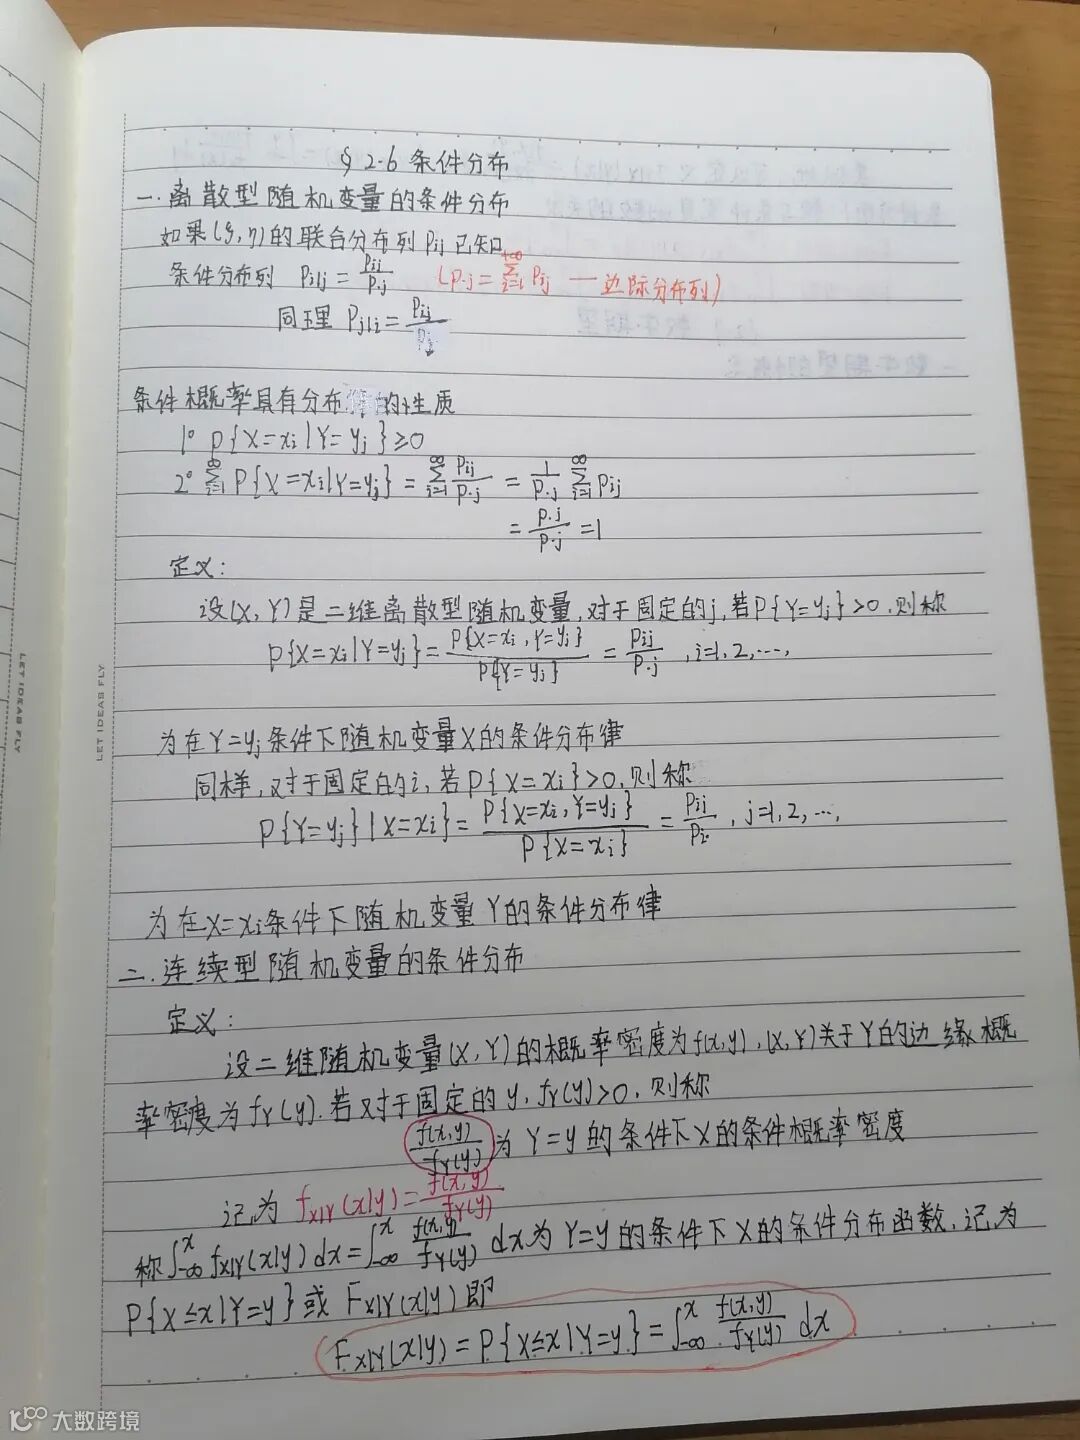 §2-6 条件分布
一.离散型随机变量的条件分布
如果(ξ,η)的联合分布列 Pij 已知
条件分布列 Pi|j = Pij/P·j (P·j = Σ_{i=1}^{+∞} Pij —边际分布列)
同理 Pj|i = Pij/Pi
条件概率具有分布律的性质
1° P{X=xi|Y=yj}≥0
2° Σ_{i=1}^{∞} P{X=xi|Y=yj} = Σ_{i=1}^{∞} Pij/P·j = 1/P·j Σ_{i=1}^{∞} Pij
= P·j/P·j =1
定义:
设(X,Y)是二维离散型随机变量,对于固定的j,若P{Y=yj}>0,则称
P{X=xi|Y=yj} = P{X=xi,Y=yj}/P{Y=yj} = Pij/P·j ,i=1,2,…,
为在Y=yj条件下随机变量X的条件分布律
同样,对于固定的i,若P{X=xi}>0,则称
P{Y=yj}|X=xi} = P{X=xi,Y=yj}/P{X=xi} = Pij/Pi· ,j=1,2,…,
为在X=xi条件下随机变量Y的条件分布律
二.连续型随机变量的条件分布
定义:
设二维随机变量(X,Y)的概率密度为f(x,y),(X,Y)关于Y的边缘概
率密度为fY(y).若对于固定的y,fY(y)>0,则称
f(x,y)/fY(y) 为Y=y的条件下X的条件概率密度
记为 fX|Y(x|y) = f(x,y)/fY(y)
称∫_{-∞}^{x} fX|Y(x|y)dx = ∫_{-∞}^{x} f(x,y)/fY(y) dx为Y=y的条件下X的条件分布函数,记为
P{X≤x|Y=y}或 FX|Y(x|y)即
FX|Y(x|y) = P{X≤x|Y=y} = ∫_{-∞}^{x} f(x,y)/fY(y) dx
LET IDEAS FLY
LET IDEAS FLY
大数跨境